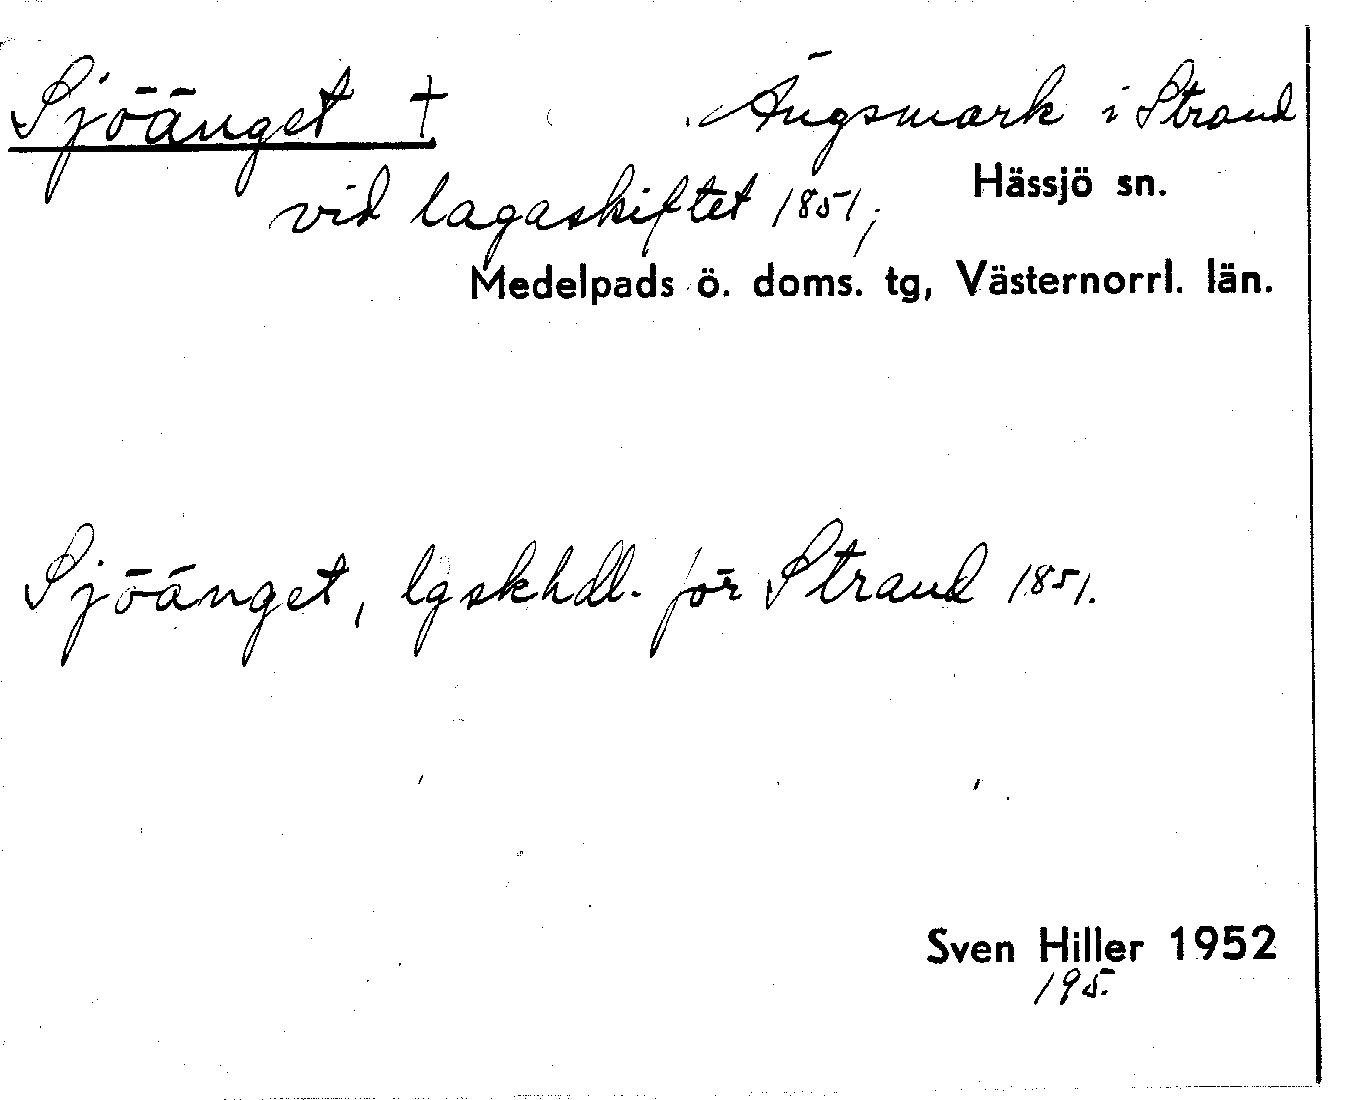 Sjöänget † Ängsmark i Strand
Hässjö sn.
vid lagaskiftet 1851;
Medelpads ö. doms. tg, Västernorrl. län.
Sjöänget, lgskhdl. för Strand 1851.
Sven Hiller 1952
195.